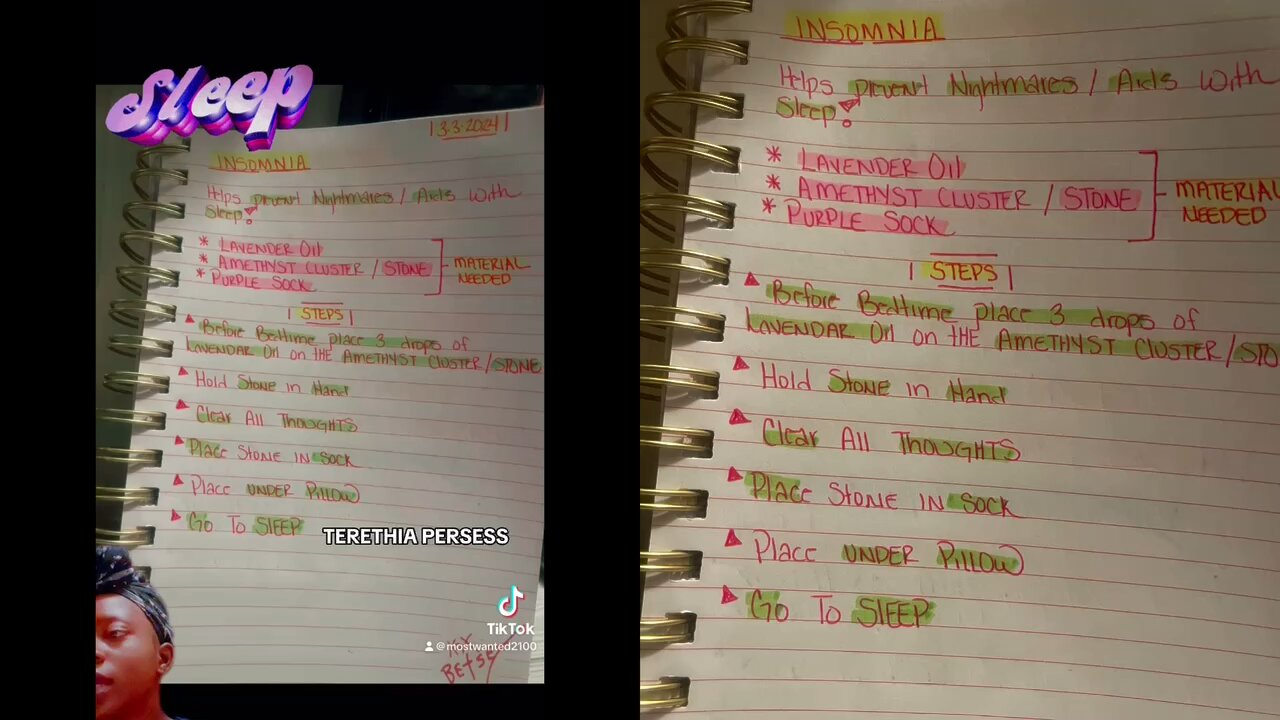 Sleep
| 3.3.2024 |
INSOMNIA
Helps prevent Nightmares / Aids With
Sleep!
* LAVENDER Oil
* AMETHYST CLUSTER / STONE
* PURPLE SOCK
MATERIAL
NEEDED
| STEPS |
Before Bedtime place 3 drops of
LAVENDAR Oil on tHE AMETHYST CLUSTER/STONE
Hold Stone in Hand
Clear All THOUGHTS
Place STONE IN SOCK
Place UNDER Pillow
Go To SlEEP
TERETHIA PERSESS
TikTok
@mostwanted2100
BETSY
INSOMNIA
Helps prevent Nightmares / Aids With
Sleep!
* LAVENDER Oil
* AMETHYST CLUSTER / STONE
* PURPLE SOCK
MATERIAL
NEEDED
| STEPS |
Before Bedtime place 3 drops of
LAVENDAR Oil on tHE AMETHYST CLUSTER/STO
Hold Stone in Hand
Clear All THOUGHTS
Place STONE IN SOCK
Place UNDER Pillow
Go To SlEEP